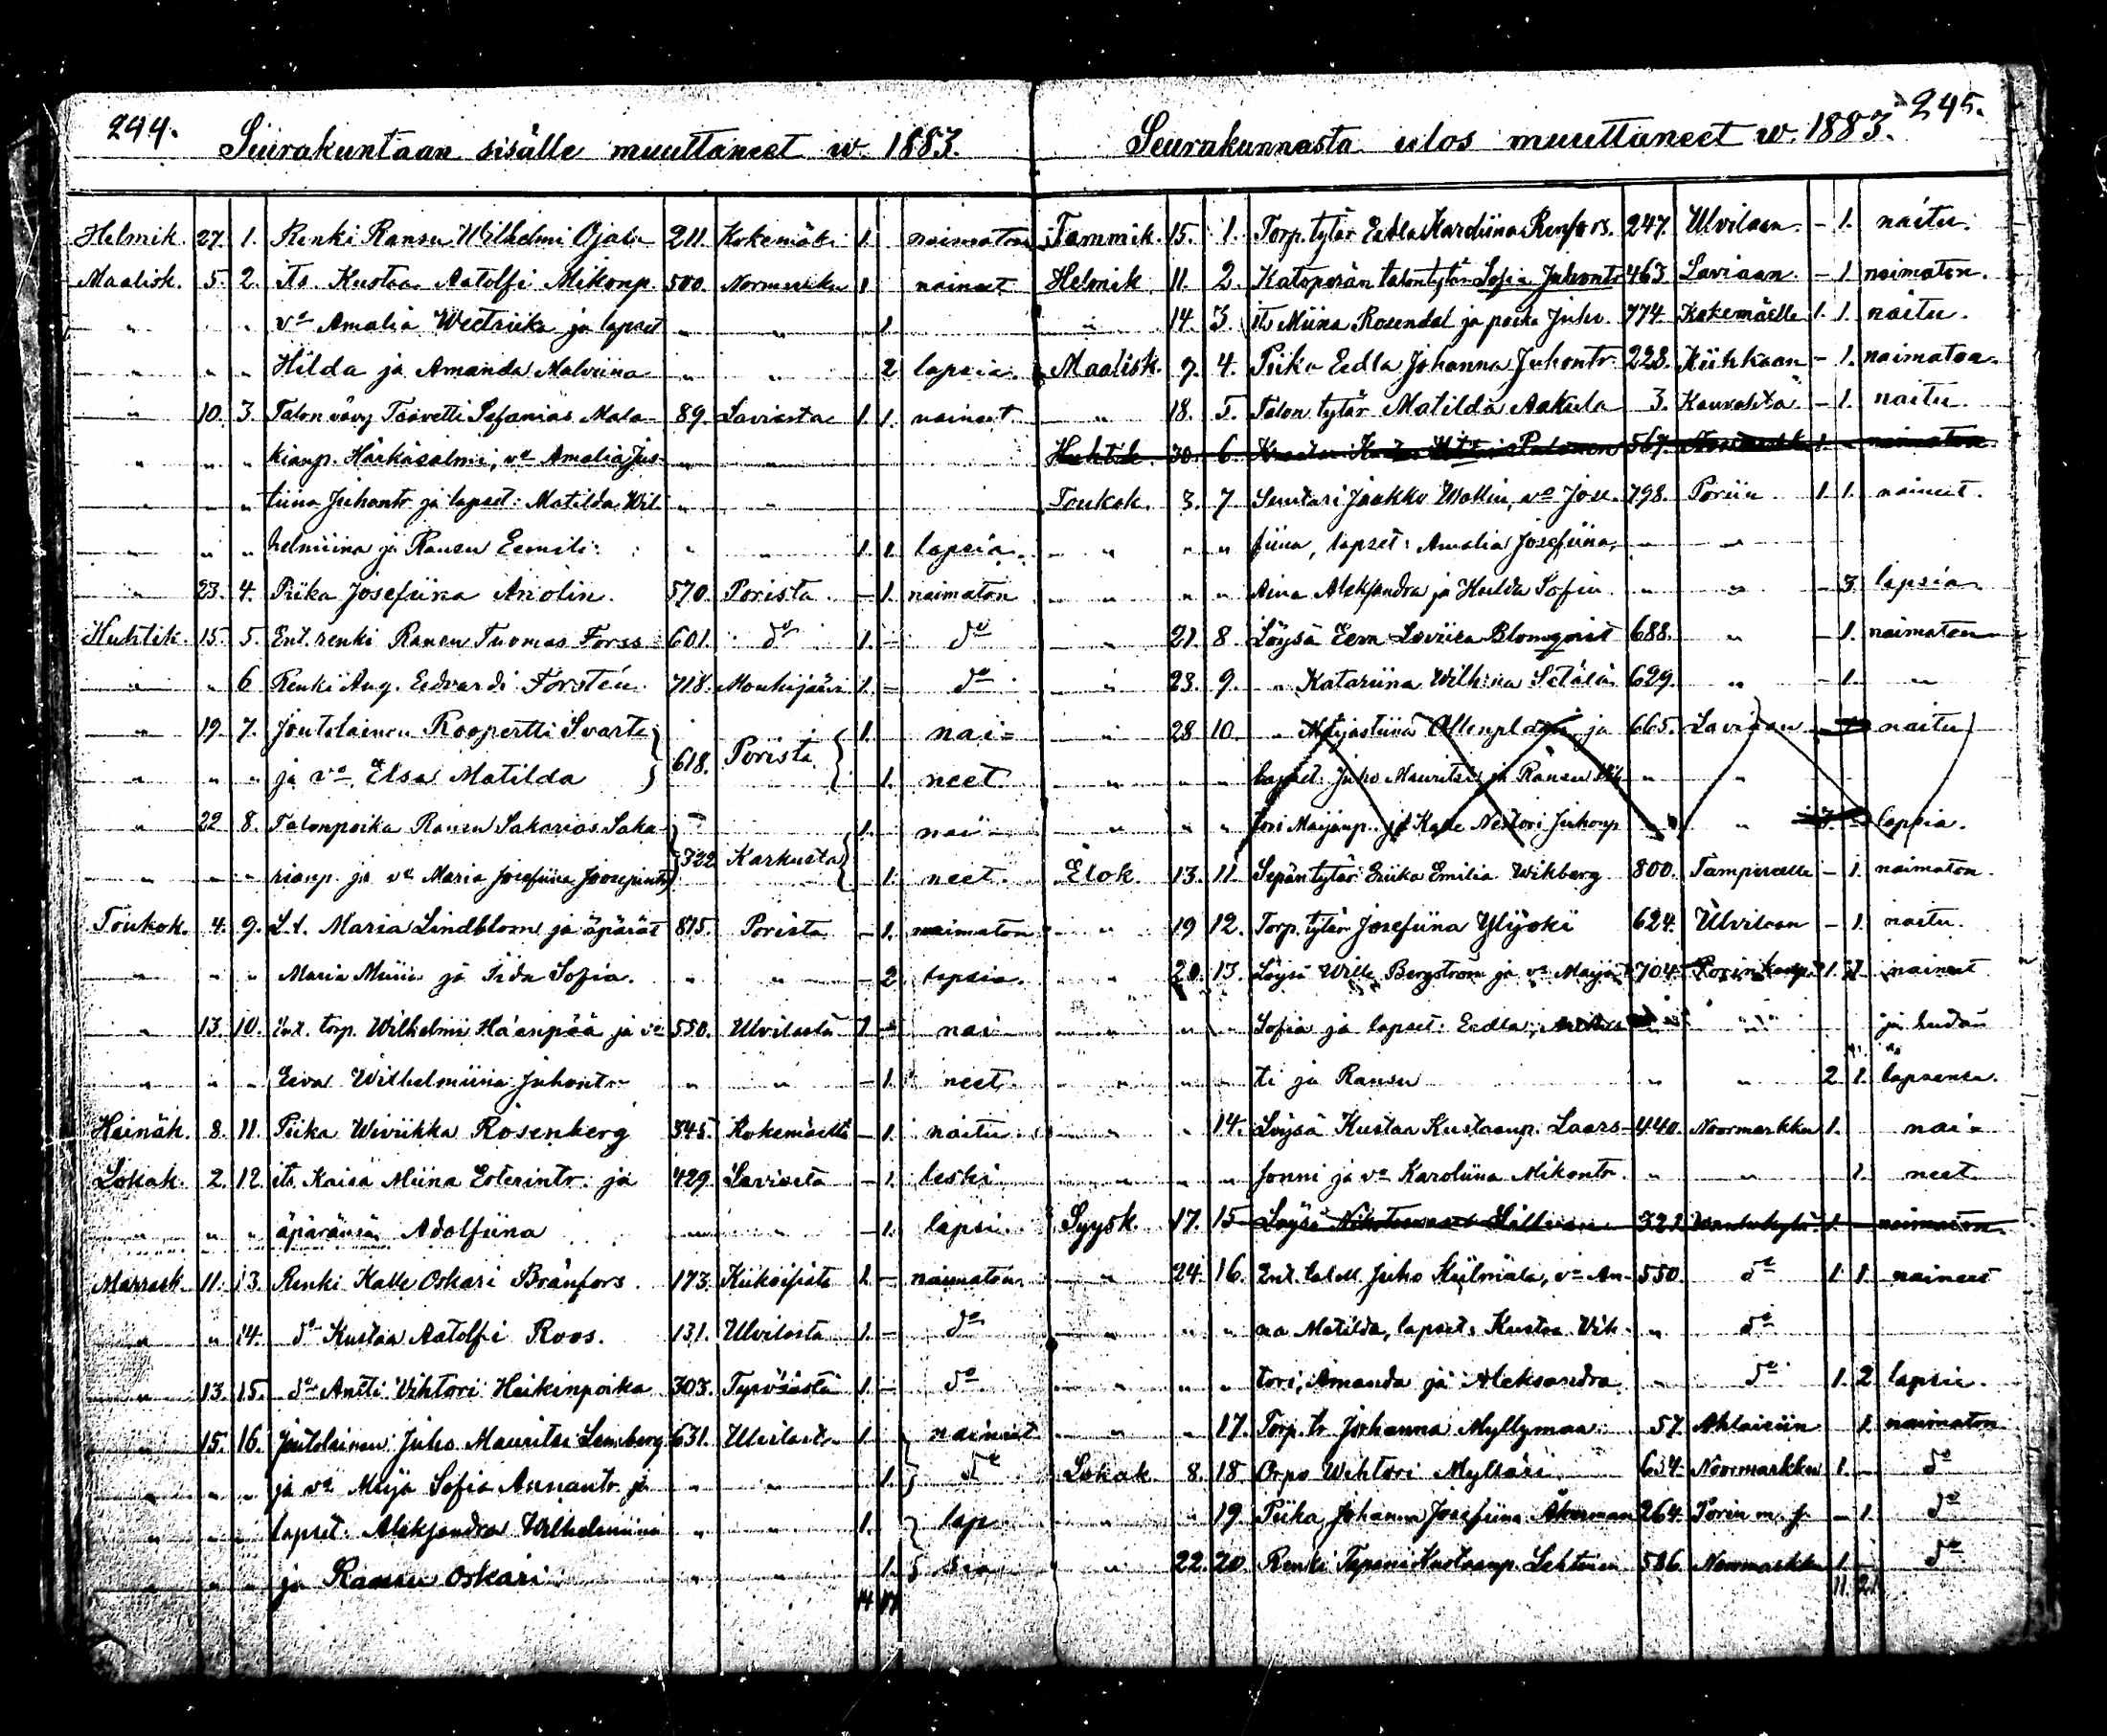 244.
Seurakuntaan sisälle muuttaneet w. 1883.
Helmik. 27. 1. Renki Ransu Wilhelmi Ojala 211. Kokemäki 1. naimaton
Maalisk. 5. 2. its. Kustaa Aatolfi Mikonp. 500. Normarkku 1 naineet
" " " vo Amalia Wectriika ja lapset " " 1
" " " Hilda ja Amanda Malviina " " 2 lapsia.
" 10. 3. Talon vävy Taavetti Sefanias Mala- 89. Laviasta 1. 1. naineet
" " " kianp. Härkäsalmi, vo Amalia Jus- " "
" " " tiina Juhontr ja lapset: Matilda Wil- " "
" " " helmiina ja Ransu Eemili: " " 1. 1. lapsia.
" 23. 4. Piika Josefiina Anolin. 570. Porista. – 1. naimaton
Huhtik. 15. 5. Ent. renki Ransu Tuomas Forss 601. do 1. – do
" " 6 Renki Aug. Eedvardi Forstén. 718. Mouhijärvi 1. – do
" 19. 7. Joutolainen Roopertti Svarts 618. Porista 1. nai=
" " " ja vo Elsa Matilda 1. neet
" 22 8. Talonpoika Ransu Sakarias Saka- 322 Karkusta 1. nai-
" " " rianp. ja vo Maria Josefiina Joosepintr 1. neet.
Toukok. 4. 9. L.t. Maria Lindblom ja äpärät 815. Porista – 1. naimaton
" " " Maria Miina ja Iida Sofia. " " – 2. lapsia.
" 13. 10. Ent. torp. Wilhelmi Haanpää ja vo 550. Ulvilasta 1 – nai
" " " Eeva Wilhelmiina Juhontr " " – 1. neet.
Heinäk. 8. 11. Piika Weviikka Rosenberg 345. Kokemäeltä – 1. naitu
Lokak. 2. 12. its. Kaisa Miina Eoterintr. ja 429. Laviasta – 1. leski
" " " äpäränsä Adolfiina " " – 1. lapsi.
Marrask. 11. 13. Renki Kalle Oskari Bränfors. 173. 1 – naimaton
" " 14. do Kustaa Aatolfi Roos. 131. Ulvilasta 1. – do
" 13. 15. do Antti Vihtori Heikinpoika 303. Tyrväästä 1. – do
" 15. 16. Joutolainen Juho Mauritsi Lemberg 631. Ulvilasta 1. naineet
" " " ja vo Maija Sofia Annantr ja " " 1. do
" " " lapset. Aleksandra Wilhelmiina " " 1. lap-
" " " ja Ransu Oskari " " 1. sia
14 17
245.
Seurakunnasta ulos muuttaneet w. 1883.
Tammik. 15. 1. Torp. tytär Eedla Karoliina Renfors. 247. Ulvilaan. – 1. naitu.
Helmik 11 2. Katoperän talontytär Sofia Juhontr 463. Laviaan. – 1. naimaton.
" 14. 3. its Miina Rosendal ja poika Juho. 774. Kokemäelle 1. 1. naitu.
Maalisk. 9. 4. Piika Eedla Johanna Juhontr. 228. Kiikkaan – 1. naimaton.
" 18. 5. Talon tytär Matilda Aakula 3. – 1. naitu
Huhtik. 30. 6. Palonen 567. Noormarkku 1. – naimaton.
Toukok. 3. 7 Seuntari Jaakko Wallin, vo Jose- 798. Poriin. 1. 1. naineet.
" " " fiina, lapset: Amalia Josefiina, " "
" " " Aina Aleksandra ja Huilda Sofia " " – 3. lapsia
" 21. 8 Löysä Eeva Loviisa Blomqvist 688. " – 1. naimaton
" 23. 9. " Katariina Wilh:ina Setälä 629. " – 1. "
" 28 10. " ja 665. Laviaan naitu
" " " lapset. Juho Mauritsi ja Ransu Vih- " "
" " " tori Maijanp. ja Kalle Nestori Juhonp " " lapsia.
Elok. 13. 11. Sepän tytär Eriika Emilia Wikberg 800. Tampereelle – 1. naimaton.
" 19 12. Torp. tytär Josefiina Ylijoki 624. Ulvilaan – 1. naitu.
" 20. 13. Löysä Wille Bergström ja vo Maija 704. Porin kaup. 1. 1 naineet
" " " Sofia ja lapset: Eedla, " " ja heidän
" " " ti ja Ransu " " 2. 1. lapsensa.
" " 14. Löysä Kustaa Kustaanp. Laars- 440. Noormarkku 1. nai-
" " " sonni ja vo Karoliina Mikontr. " " 1. neet.
Syysk. 17. 15 Löysä 322 1. – naimaton.
" 24. 16. Ent. Juho Kiilmälä, vo An- 550. do 1. 1. naineet
" " " na Matilda, lapset: Kustaa Vih- " do
" " " tori, Amanda ja Aleksandra " do 1. 2. lapsia.
" " 17. Torp. tr Johanna Myllymaa. 57. Ahlaisiin 1 naimaton
Lokak. 8. 18 Orpo Wihtori Mylläri. 634. Noormarkku 1. – do
" " 19. Piika Johanna Josefiina Åkerman 264. Porin m. s. – 1. do
" 22. 20. Renki Tapani Kustaanp. Lehtinen 586. Noormarkku 1. – do
11. 21